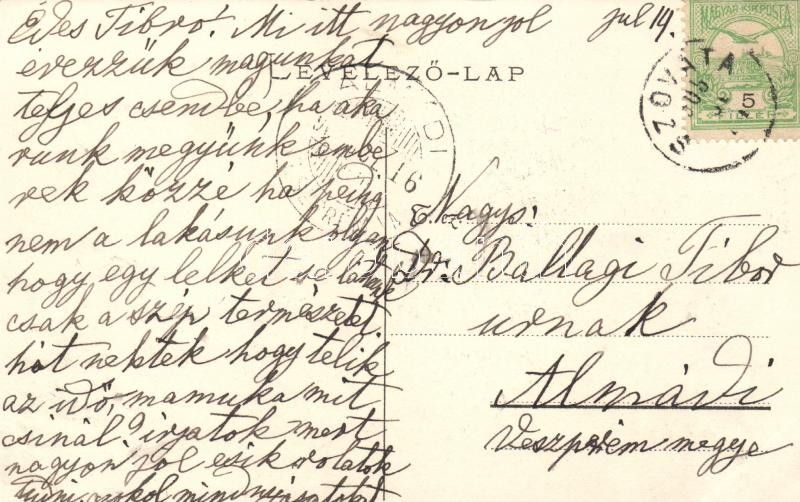 Édes Tibró! Mi itt nagyon jol
jul 14.
érezzük magunkat
LEVELEZŐ-LAP
teljes csendbe, ha aka
runk megyünk embe
rek közzé ha pedig
nem a lakásunk olyan
hogy egy lelket se látunk
csak a szép természetet
hát nektek hogy telik
az idő, mamuka mit
csinál? irjatok mert
nagyon jol esik rolatok
tudni
MAGYAR KIR. POSTA
5
FILLÉR
SZOVÁTA
16
Nagys:
Dr. Ballagi Tibor
urnak
Almádi
Veszprém megye